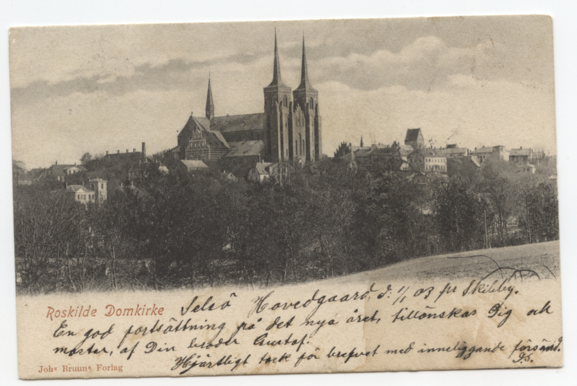 Roskilde Domkirke
Selsö Hovedgaard, d. 1/1 03 pr Skibby.
En god fortsättning på det nya året, tillönskas Dig och
moster, af Din broder Gustaf.
Hjärtligt tack för brefvet med inneliggande försänd.
Johs Bruuns Forlag